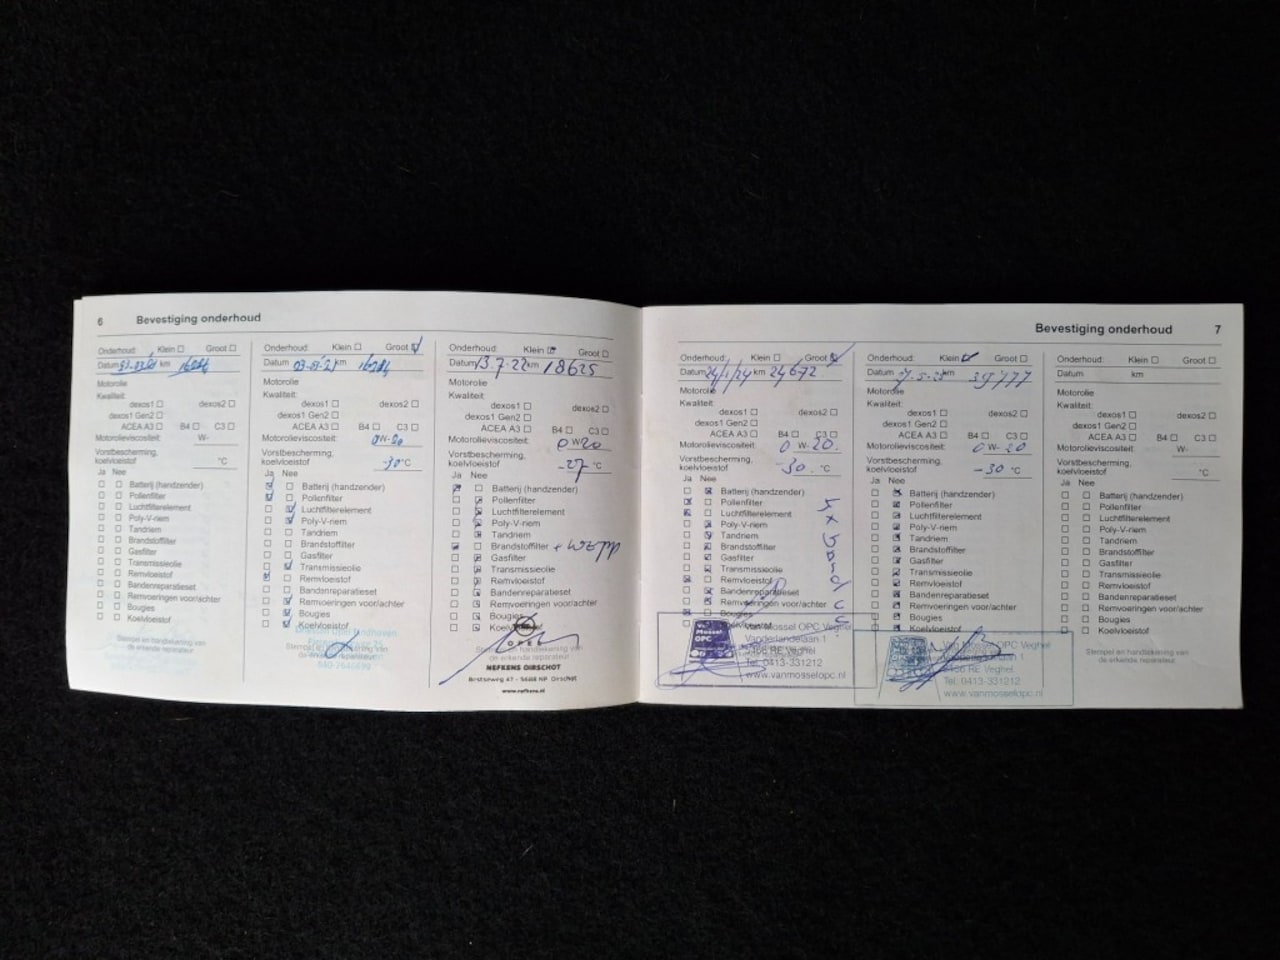 6 Bevestiging onderhoud
Onderhoud: Klein ☐ Groot ☐
Datum km
Motorolie
Kwaliteit:
dexos1 ☐ dexos2 ☐
dexos1 Gen2 ☐
ACEA A3 ☐ B4 ☐ C3 ☐
Motorolieviscositeit: W-
Vorstbescherming,
koelvloeistof °C
Ja Nee
Batterij (handzender)
Pollenfilter
Luchtfilterelement
Poly-V-riem
Tandriem
Brandstoffilter
Gasfilter
Transmissieolie
Remvloeistof
Bandenreparatieset
Remvoeringen voor/achter
Bougies
Koelvloeistof
Stempel en handtekening van
de erkende reparateur
Onderhoud: Klein ☐ Groot ☑
Datum km
Motorolie
Kwaliteit:
dexos1 ☐ dexos2 ☐
dexos1 Gen2 ☐
ACEA A3 ☐ B4 ☐ C3 ☐
Motorolieviscositeit: 0W-20
Vorstbescherming,
koelvloeistof -30 °C
Ja Nee
Batterij (handzender)
Pollenfilter
Luchtfilterelement
Poly-V-riem
Tandriem
Brandstoffilter
Gasfilter
Transmissieolie
Remvloeistof
Bandenreparatieset
Remvoeringen voor/achter
Bougies
Koelvloeistof
Onderhoud: Klein ☑ Groot ☐
Datum 13.7-22 km 18625
Motorolie
Kwaliteit:
dexos1 ☐ dexos2 ☐
dexos1 Gen2 ☐
ACEA A3 ☐ B4 ☐ C3 ☐
Motorolieviscositeit: 0 W 20
Vorstbescherming,
koelvloeistof -27 °C
Ja Nee
Batterij (handzender)
Pollenfilter
Luchtfilterelement
Poly-V-riem
Tandriem
Brandstoffilter
Gasfilter
Transmissieolie
Remvloeistof
Bandenreparatieset
Remvoeringen voor/achter
Bougies
Koelvloeistof
OPEL
NEFKENS OIRSCHOT
www.nefkens.nl
Bevestiging onderhoud 7
Onderhoud: Klein ☐ Groot ☑
Datum 24/1/24 km 24672
Motorolie
Kwaliteit:
dexos1 ☐ dexos2 ☐
dexos1 Gen2 ☐
ACEA A3 ☐ B4 ☐ C3 ☐
Motorolieviscositeit: 0 W- 20.
Vorstbescherming,
koelvloeistof -30. °C
Ja Nee
Batterij (handzender)
Pollenfilter
Luchtfilterelement
Poly-V-riem
Tandriem
Brandstoffilter
Gasfilter
Transmissieolie
Remvloeistof
Bandenreparatieset
Remvoeringen voor/achter
Bougies
Van Mossel OPC Veghel
Vanderlandelaan 1
5466 RE Veghel
Tel. 0413-331212
www.vanmosselopc.nl
Onderhoud: Klein ☑ Groot ☐
Datum km
Motorolie
Kwaliteit:
dexos1 ☐ dexos2 ☐
dexos1 Gen2 ☐
ACEA A3 ☐ B4 ☐ C3 ☐
Motorolieviscositeit: 0 W- 20
Vorstbescherming,
koelvloeistof -30 °C
Ja Nee
Batterij (handzender)
Pollenfilter
Luchtfilterelement
Poly-V-riem
Tandriem
Brandstoffilter
Gasfilter
Transmissieolie
Remvloeistof
Bandenreparatieset
Remvoeringen voor/achter
Bougies
Koelvloeistof
Van Mossel OPC Veghel
5466 RE Veghel
Tel. 0413-331212
www.vanmosselopc.nl
Onderhoud: Klein ☐ Groot ☐
Datum km
Motorolie
Kwaliteit:
dexos1 ☐ dexos2 ☐
dexos1 Gen2 ☐
ACEA A3 ☐ B4 ☐ C3 ☐
Motorolieviscositeit: W-
Vorstbescherming,
koelvloeistof °C
Ja Nee
Batterij (handzender)
Pollenfilter
Luchtfilterelement
Poly-V-riem
Tandriem
Brandstoffilter
Gasfilter
Transmissieolie
Remvloeistof
Bandenreparatieset
Remvoeringen voor/achter
Bougies
Koelvloeistof
Stempel en handtekening van
de erkende reparateur